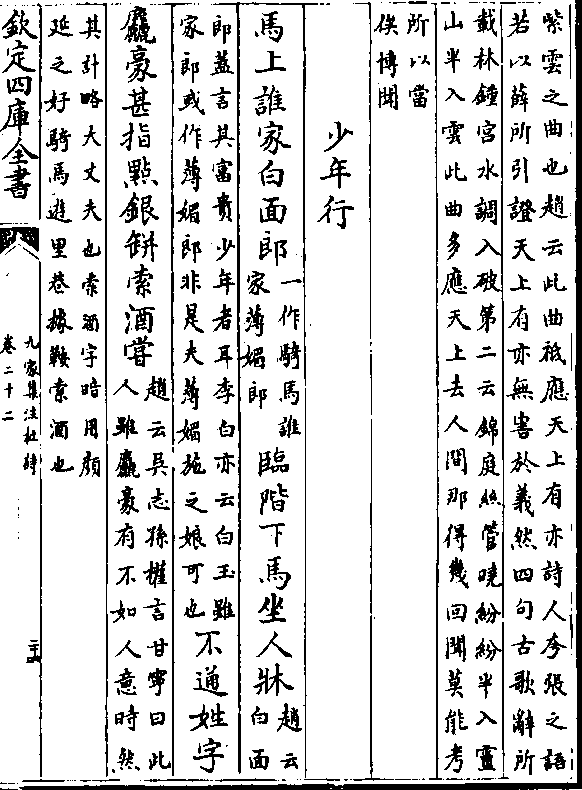 紫雲之曲也趙云此曲祗應天上有亦詩人夸張之語
若以薛所引證天上有亦無害於義然四句古歌辭所
載林鍾宮水調入破第二云錦庭絲管曉紛紛半入靈
山半入雲此曲多應天上去人間那得幾回聞莫能考
所以當
俟博聞
少年行
馬上誰家白面郎一作騎馬誰
家薄媚郎臨階下馬坐人牀趙云
白面
郎蓋言其富貴少年者耳李白亦云白玉雖
家郎或作薄媚郎非是夫薄媚施之娘可也不通姓字
麤豪甚指點銀缾索酒嘗趙云吳志孫權言甘寧曰此
人雖麤豪有不如人意時然
其計略大丈夫也索酒字暗用顏
延之好騎馬遊里巷據鞍索酒也
欽定四庫全書
九家集注杜詩
卷二十二
二十四